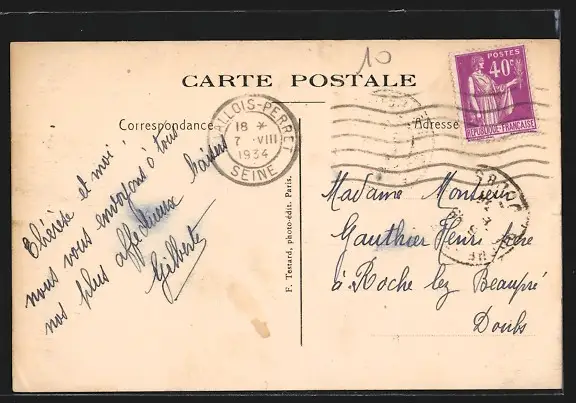 10
CARTE POSTALE
POSTES
40c
REPUBLIQUE-FRANÇAISE
Correspondance
Adresse
LLOIS-PERRET
18 *
7 VIII
1934
SEINE
Thérèse et moi
nous vous envoyons à tous
nos plus affectueux baisers
Gilberte
F. Testard, photo-édit. Paris.
Madame Monsieur
Gauthier Henri père
à Roche lez Beaupré
Doubs